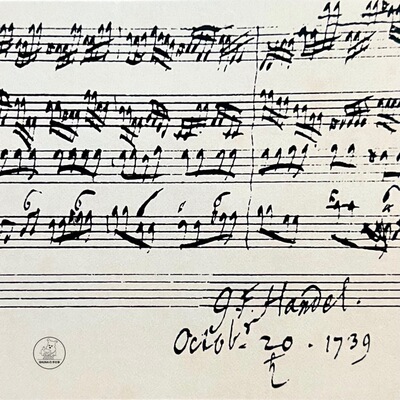 G F Handel.
Octobʳ. 20 . 1739
♄